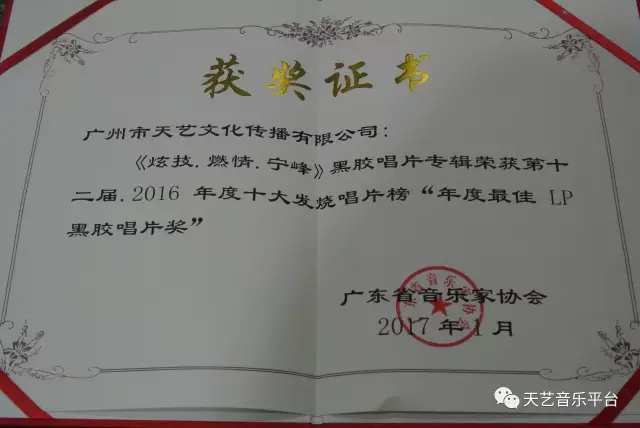 获奖证书
广州市天艺文化传播有限公司：
《炫技.燃情.宁峰》黑胶唱片专辑荣获第十
二届.2016 年度十大发烧唱片榜“年度最佳 LP
黑胶唱片奖”
广东省音乐家协会
2017 年 1 月
天艺音乐平台